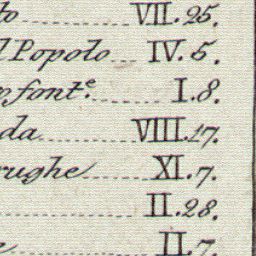 to VII.25.
l Popolo IV.5.
ofont.e I.8.
da VIII.17.
rughe XI.7.
II.28.
e II.7.